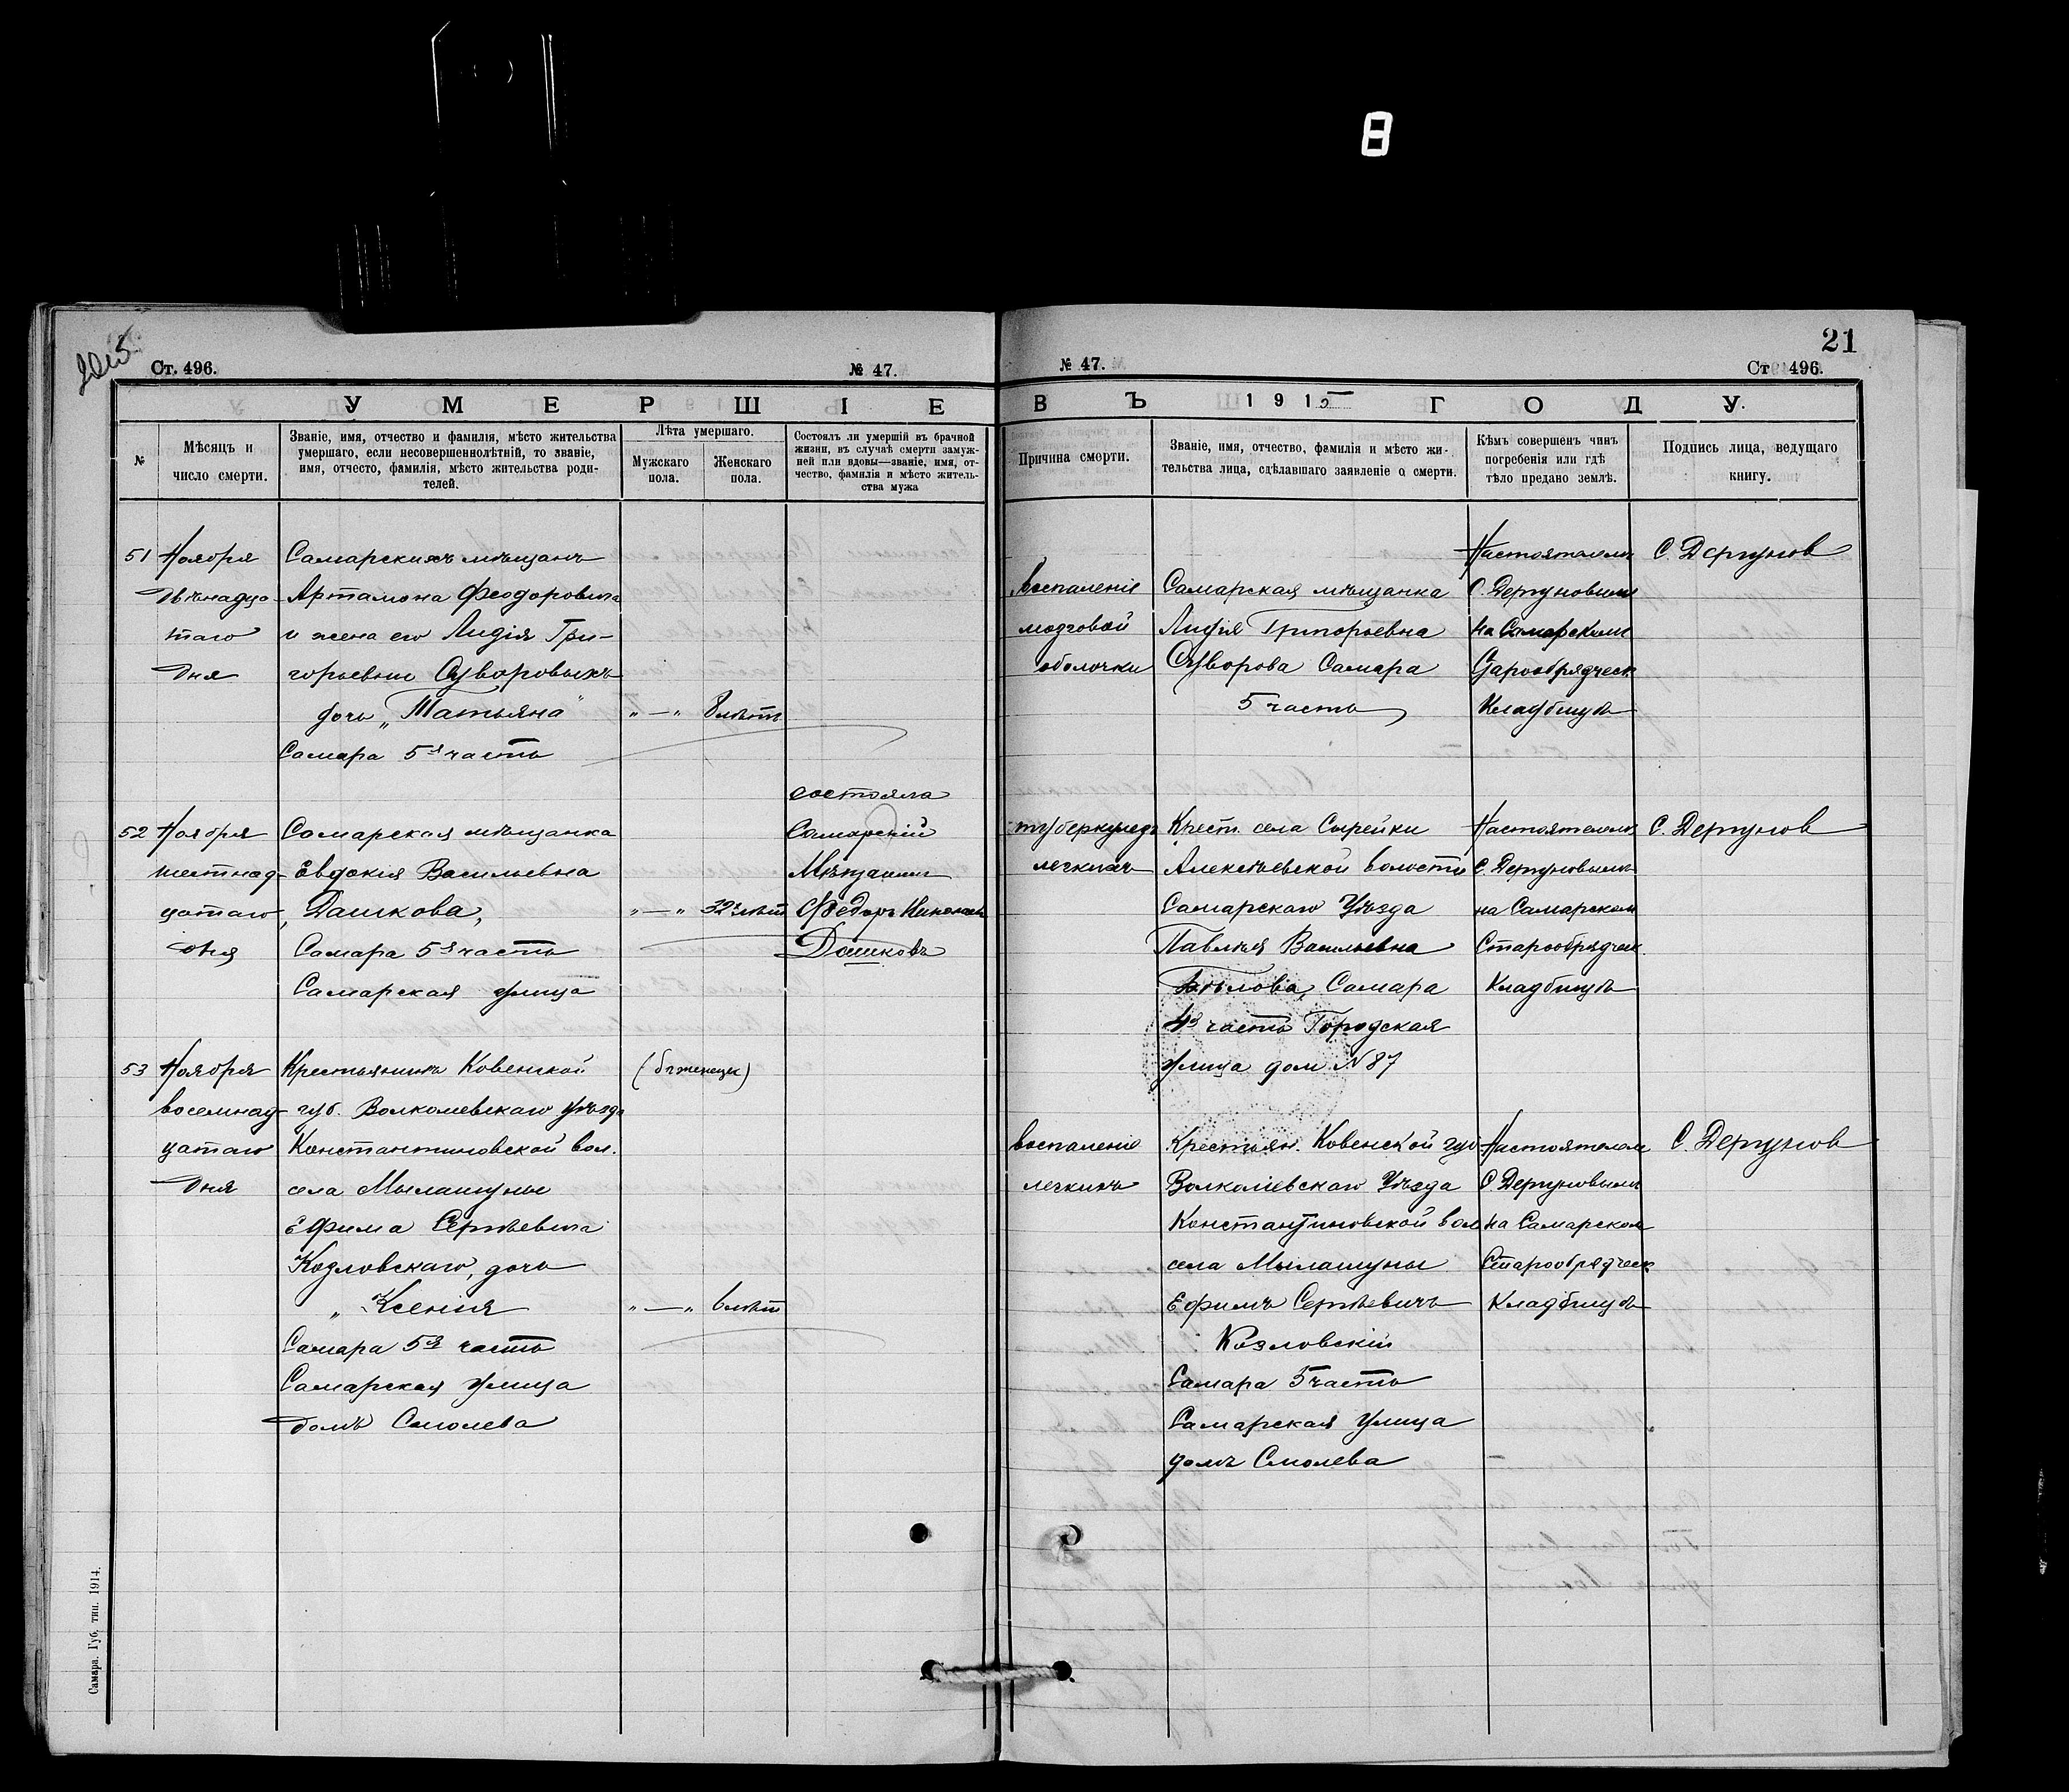 8
21
Ст. 496.
№ 47.
№ 47.
Ст. 496.
УМЕРШІЕ
ВЪ 1915 ГОДУ.
№
Мѣсяцъ и число смерти.
Званіе, имя, отчество и фамилія, мѣсто жительства
умершаго, если несовершеннолѣтній, то званіе,
имя, отчесто, фамилія, мѣсто жительства роди-
телей.
Лѣта умершаго.
Мужскаго пола.
Женскаго пола.
Состоялъ ли умершій въ брачной
жизни, въ случаѣ смерти замуж-
ней или вдовы—званіе, имя, от-
чество, фамилія и мѣсто житель-
ства мужа
Причина смерти.
Званіе, имя, отчество, фамилія и мѣсто жи-
тельства лица, сдѣлавшаго заявленіе о смерти.
Кѣмъ совершенъ чинъ
погребенія или гдѣ
тѣло предано землѣ.
Подпись лица, ведущаго
книгу.
51
Ноября
двѣнадца-
таго
дня
Самарскихъ мѣщанъ
Артамона Феодоровича
и жена его Лидія Гри-
горьевны Суворовыхъ
дочь „Татьяна"
Самара 5я часть
„ — „
8 лѣтъ
Воспаленіе
мозговой
оболочки
Самарская мѣщанка
Лидія Григорьевна
Суворова Самара
5 часть
Настоятелемъ
С. Дергуновымъ
на Самарскомъ
Старообрядческ
Кладбищѣ
С. Дергунов
52
Ноября
шестнад-
цатаго
дня
Самарская мѣщанка
Евдокія Васильевна
Дашкова,
Самара 5я часть
Самарская улица
„ — „
32 лѣт
состояла
Самарскій
Мѣщанин
Федоръ
Дашковъ
туберкулезъ
легкихъ
Крест. села Сырейки
Алексѣевской волости
Самарскаго Уѣзда
Васильевна
Самара
4я часть Городская
улица дом № 87
Настоятелемъ
С. Дергуновымъ
на Самарском
Старообрядческ.
Кладбищѣ
С. Дергунов
53
Ноября
восемнад-
цатаго
дня
Крестьянинъ Ковенской
губ. Волкомевскаго уѣзда
Константиновской вол.
села Мылашуны
Ефима Сергѣевича
Козловскаго, дочь
„ Ксенія
Самара 5я часть
Самарская улица
домъ Смолева
(бѣженецы)
„ — „
6 лѣт
воспаленіе
легкихъ
Крестьян. Ковенской губ
Волкоміевскаго Уѣзда
Константиновской вол
села Мылашуны
Ефимъ Сергѣевичъ
Козловскій
Самара 5 часть
Самарская Улица
домъ Смолева
Настоятелем
С. Дергуновымъ
на Самарском
Старообрядческ
Кладбищѣ
С. Дергунов
Самара. Губ. тип. 1914.